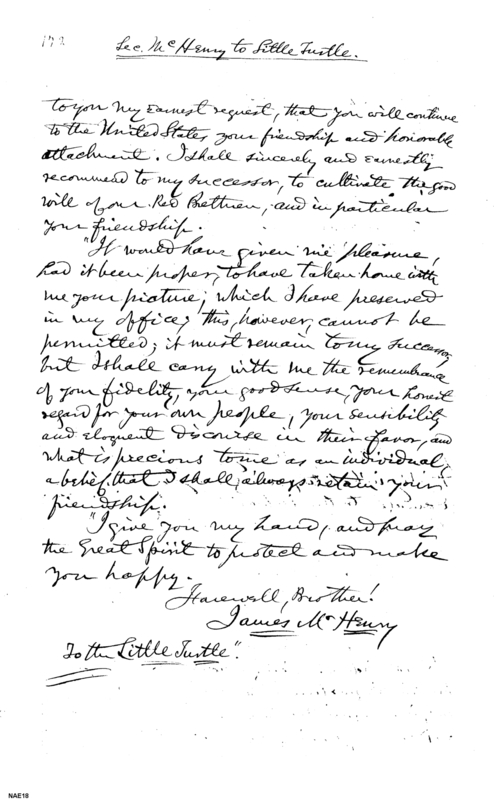 Sec. McHenry to Little Turtle.
to you my earnest request, that you will continue
to the United States your friendship and honorable
attachment. I shall sincerely and earnestly
recommend to my successor, to cultivate the good
will of our Red Brethren, and in particular
your friendship.
"It would have given me pleasure,
had it been proper, to have taken home with
me your picture; which I have preserved
in my office; this, however, cannot be
permitted; it must remain to my successor,
but I shall carry with me the remembrance
of your fidelity, your good sense, your honest
regard for your own people, your sensibility
and eloquent discourse in their favor, and
what is precious to me as an individual,
a belief that I shall always retain your
friendship.
"I give you my hand, and pray
the Great Spirit to protect and make
you happy.
Farewell, Brother!
James McHenry
To the Little Turtle".
NAE18